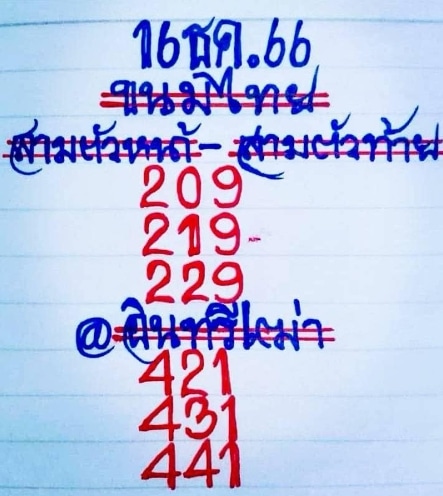 16ธค.66
ขนมไทย
สามตัวหน้า - สามตัวท้าย
209
219
229
@อินทรีเหม่า
421
431
441